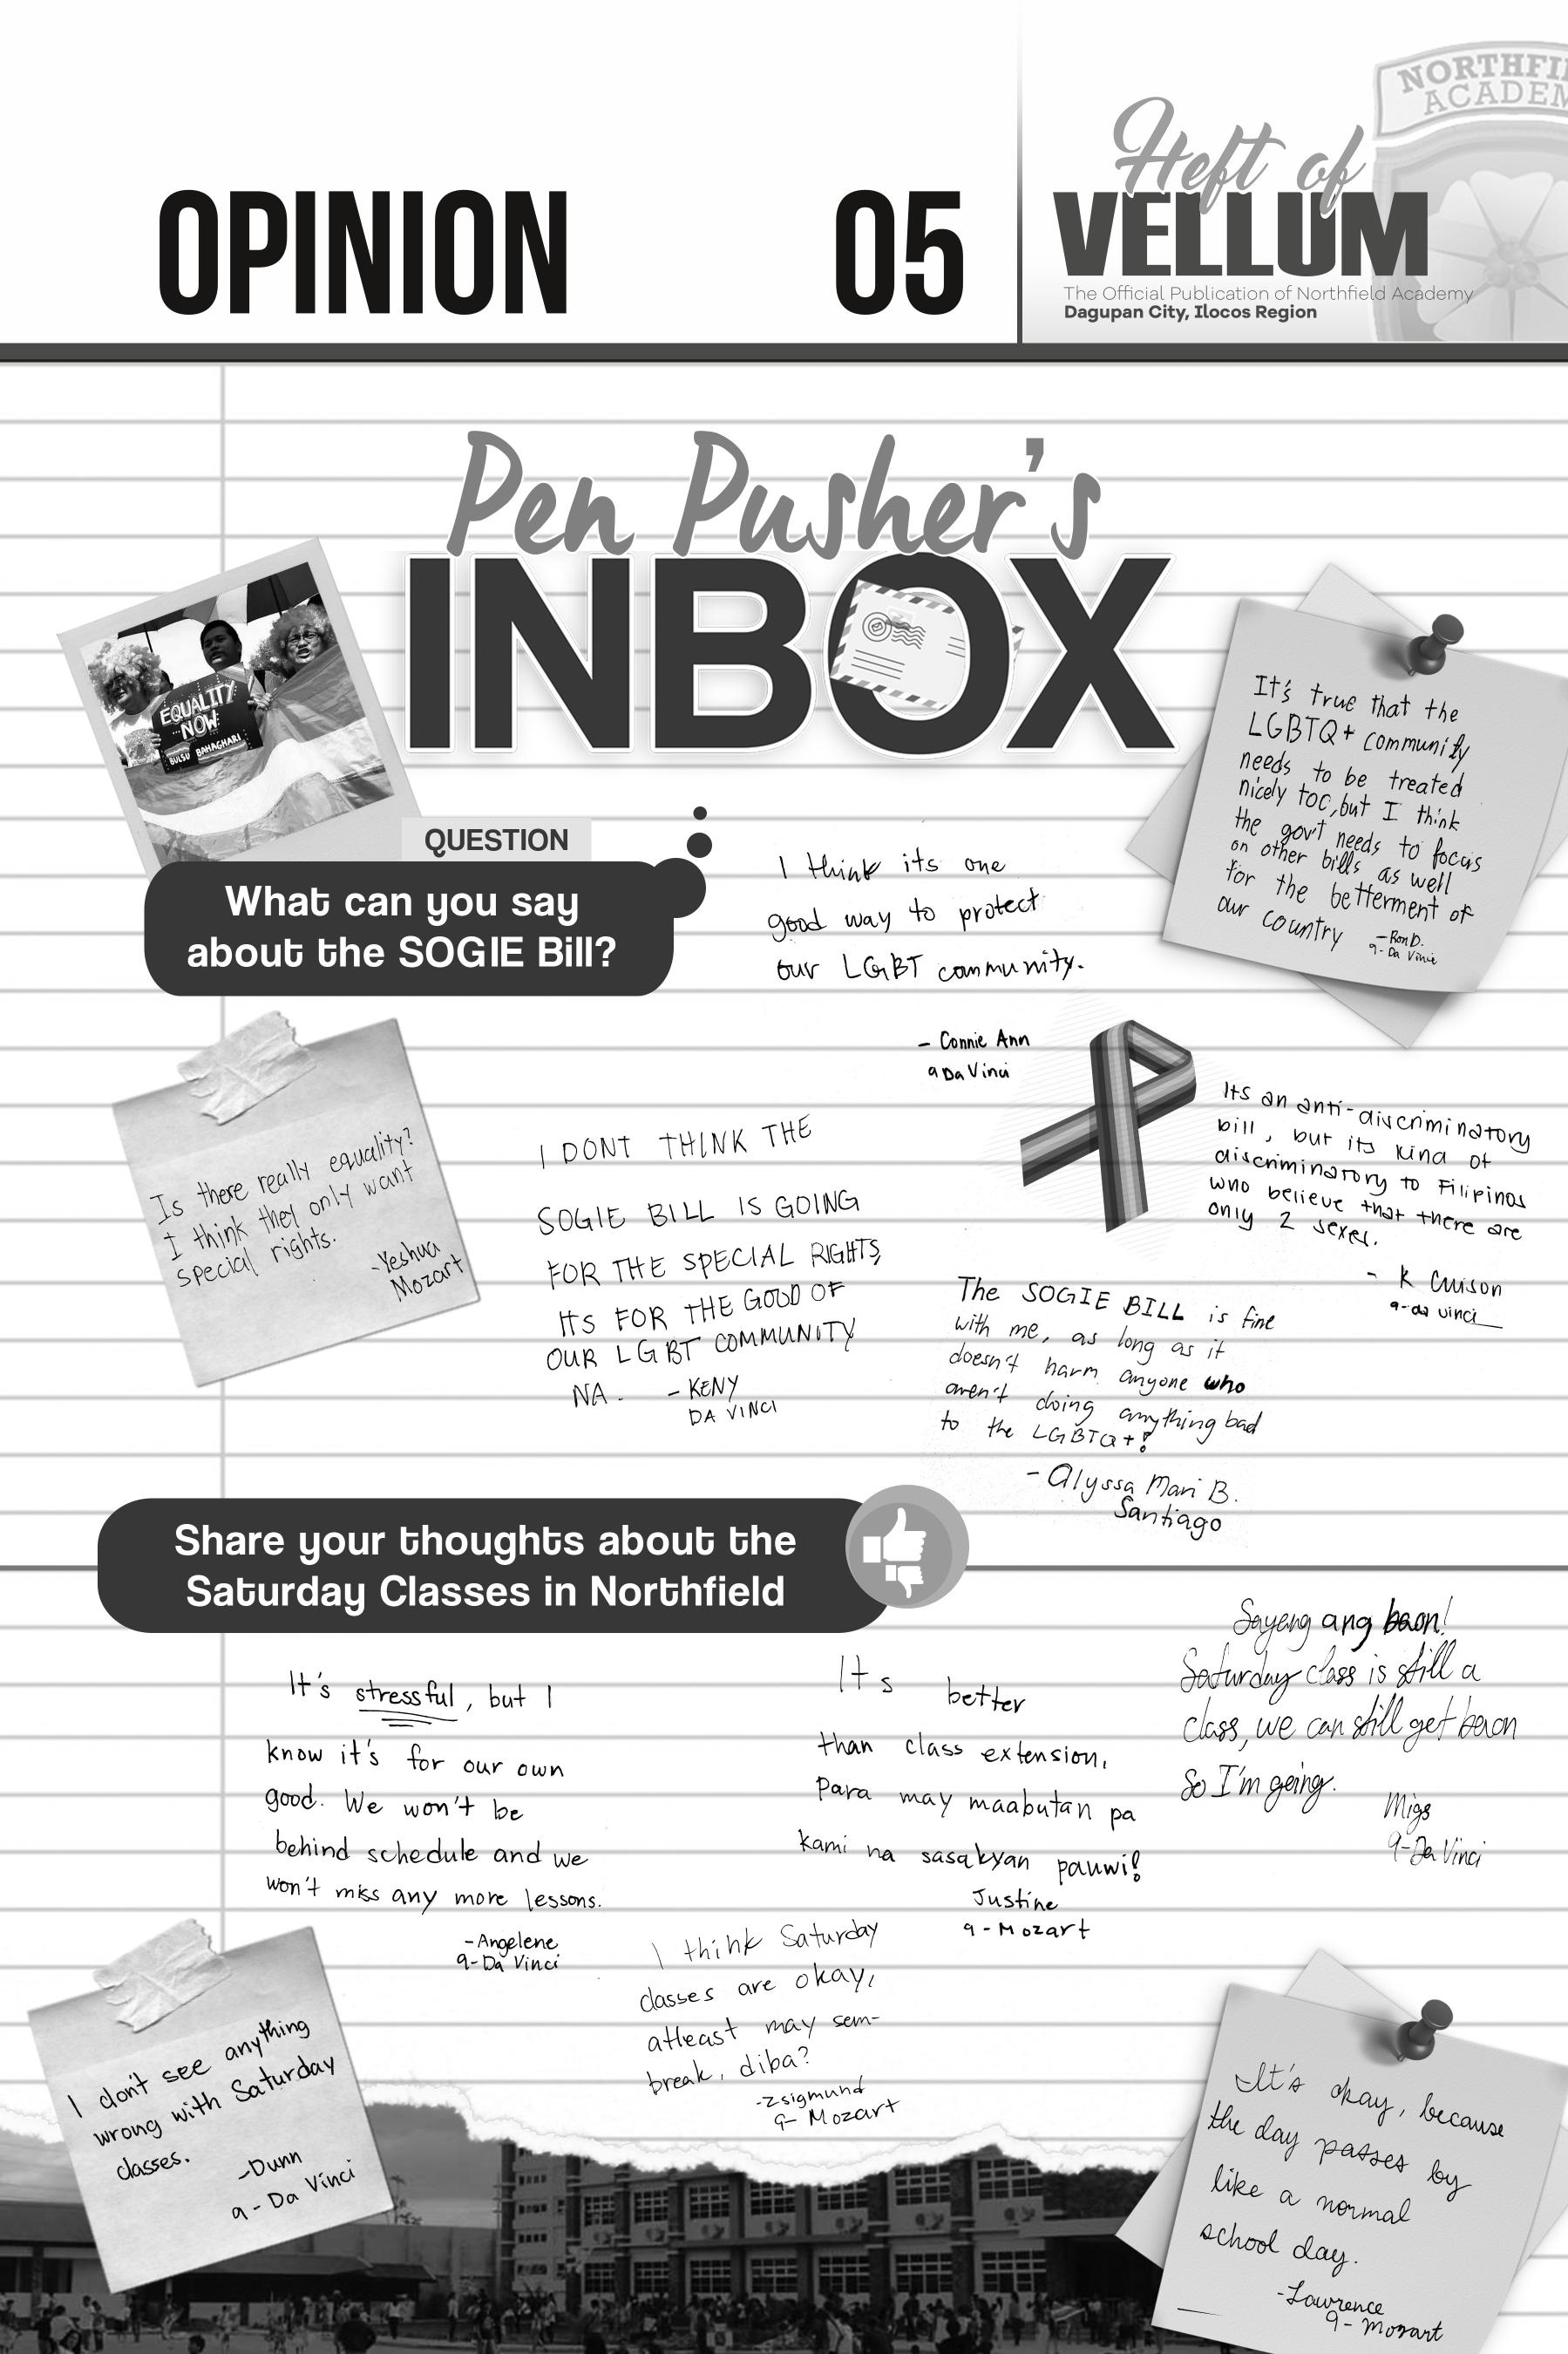 OPINION
05
NORTHFI
ACADEM
Heft of
VELLUM
The Official Publication of Northfield Academy
Dagupan City, Ilocos Region
Pen Pusher's
INBOX
EQUALITY
NOW
BULSU BAHAGHARI
QUESTION
What can you say
about the SOGIE Bill?
I think its one
good way to protect
our LGBT community.
- Connie Ann
9 Da Vinci
It's true that the
LGBTQ+ community
needs to be treated
nicely too, but I think
the gov't needs to focus
on other bills as well
for the betterment of
our country
- Ron D.
9- Da Vinci
Is there really equality?
I think they only want
special rights.
-Yeshua
Mozart
I DONT THINK THE
SOGIE BILL IS GOING
FOR THE SPECIAL RIGHTS,
ITS FOR THE GOOD OF
OUR LGBT COMMUNITY
NA. - KENY
DA VINCI
Its an anti-discriminatory
bill, but its kind of
discriminatory to Filipinos
who believe that there are
only 2 sexes.
- K Cuison
9-da vinci
The SOGIE BILL is fine
with me, as long as it
doesn't harm anyone who
aren't doing anything bad
to the LGBTQ+!
- Alyssa Mari B.
Santiago
Share your thoughts about the
Saturday Classes in Northfield
It's stressful, but I
know it's for our own
good. We won't be
behind schedule and we
won't miss any more lessons.
-Angelene
9-Da Vinci
Its better
than class extension,
Para may maabutan pa
kami na sasakyan pauwi!
Justine
9 - Mozart
Sayang ang baon!
Saturday class is still a
class, we can still get baon
So I'm going.
Migs
9-Da Vinci
I think Saturday
classes are okay,
atleast may sem-
break, diba?
-Zsigmund
9- Mozart
I don't see anything
wrong with Saturday
classes.
-Dunn
9 - Da Vinci
It's okay, because
the day passes by
like a normal
school day.
-Lawrence
9 - Mozart